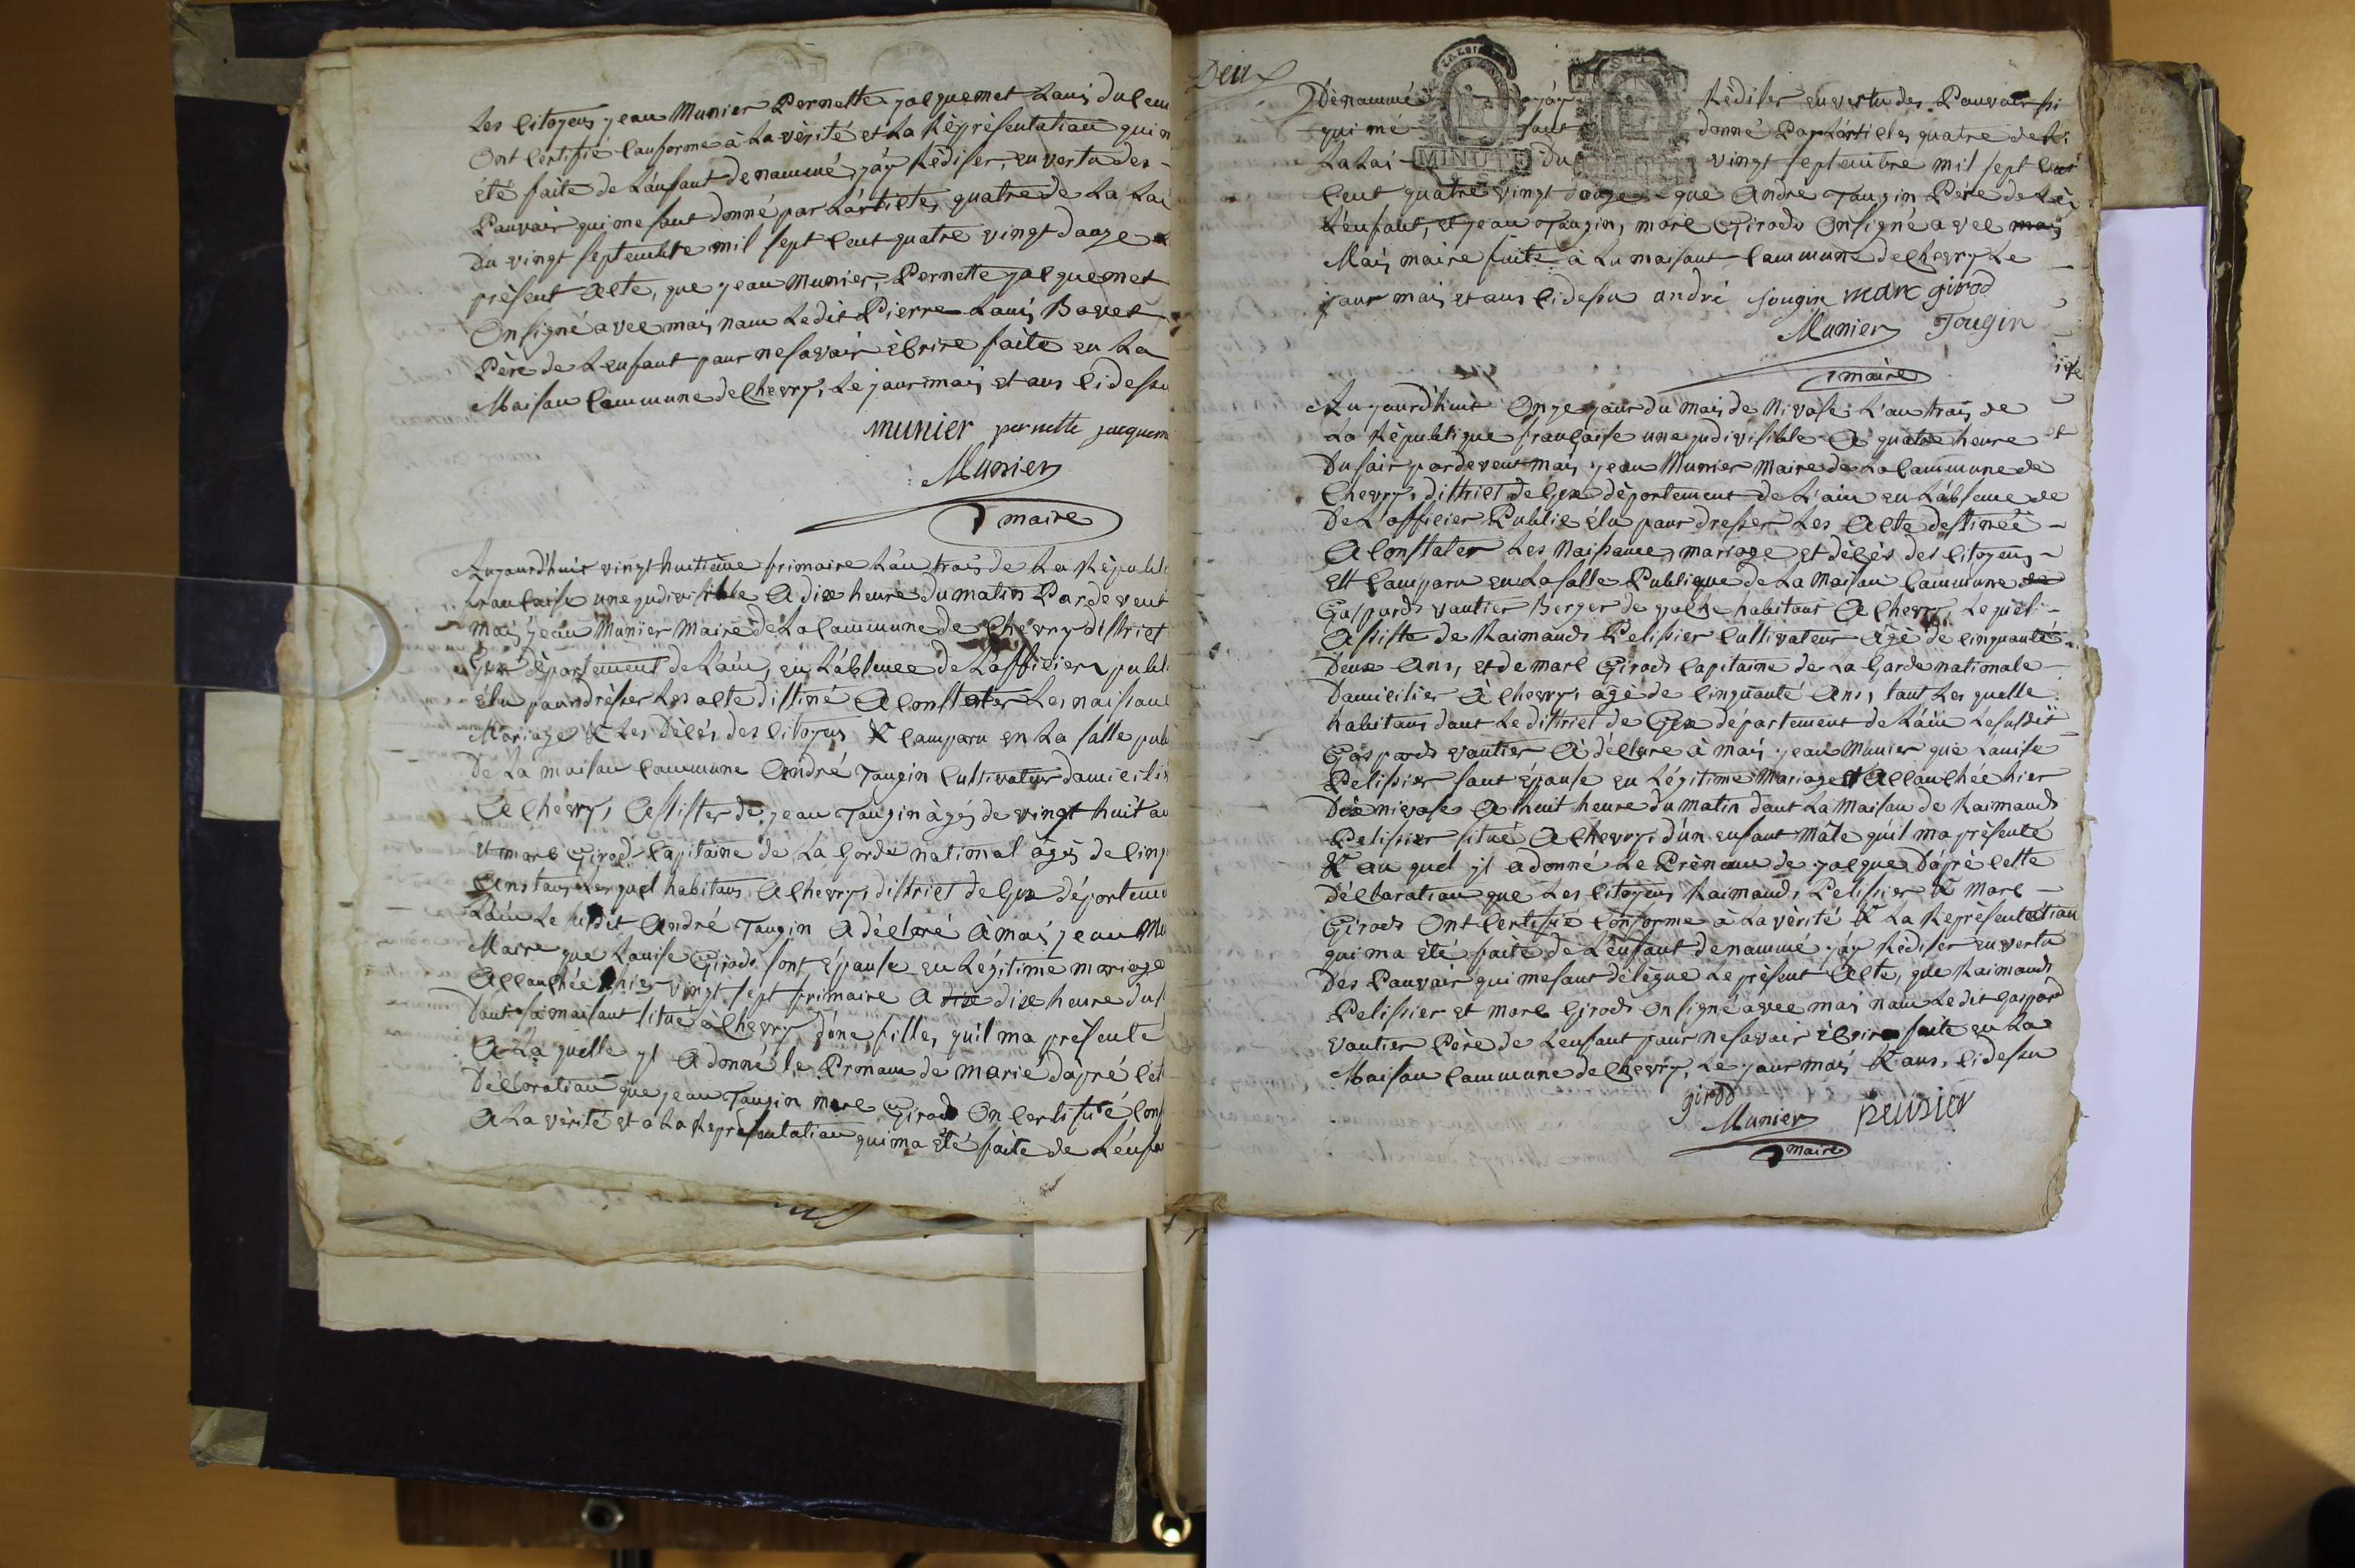 Les Citoyens jean Munier Pernette jalquemet Lauis
Ont Certifie Conforme à La vèrité et La Rèprèsentatiaun qui
Été faite de L'ènfant denammé, j'ay Rèdiser, en vertu des -
Pauvair qui me sant donné par L'àrticles quatre de La Lai
Du vingt septembre mil sept Cent quatre vingt dauze
prèsent Acte, que jean Munier, Pernette jalquemet
On signé avec mai, nam Ledit Pierre Lauis Bovet
Père de L'enfant paur ne savair Ècrire faite en La
Maisan Commune de Chevry, Le jaur mais et ans Cidessu
munier pernette
Munier
maire
Aujaurdhuit vingt huitième frimaire L'àn trais de La
francaise une jndivisible A dix heures du matin Pardevent
mai jean Munier Maire de La Commune de Chevry district
Gex dèpartement de L'àin, en L'àbsence de L'officier
èlu paur drèsser Les acte distiné A Constater Les
Mariage & Les Dècès des Citoyens & Camparu en La salle
De La maisan Commune Andrè Taugin Cultivateur
A Chèvry, Assister de jean Taugin àgés de vingt huit
et marc Girod Capitaine de La Garde national àgés de
Ans taus Lesquel habitans A Chevry, district de Gex
L'àin Le susdit Andrè Taugin A dèclaré à mai jean
Maire que Lauise Girods sont Èpause en Lègitime mariage
Accauchée hier vingt sept frimaire A dix dix heure
Dant sa maisant situé à Chevry d'une fille, qu'il ma prèsenté
A La quelle jl A donné le Prenam de marie d'àpré
Dèclaratiaun que jean Taugin marc Girods On Certifié
A La vèrité et à La Reprèsentatiaun qui ma Èté faite de
Deux
Dènammé j'ay Rèdiser en vertu des Pauvair
qui mé sant donné Par L'àrticles quatre de
La Lai du vingt septembre mil sept Cent
Cent quatre vingt dauze que Andrè Taugin Père de
L'ènfant, et jean Taugin, marc Girods On signé avec mai
Mai, maire faite à La maisant Commune de Chevry Le
jaur mais et ans Cidessu andré tougin marc girod
Munier Tougin
maire
Aujaurd'huit Onze jaur du mais de Nivose, L'an trais de
La Rèpublique française une jndivisible A quatre heure
Du sair pardevent mai, jean Munier Maire de La Commune de
Chevry, district de Gex dèpartement de L'ain en L'àbsence de
De L'officier Public èlu paur dresser Les Acte destinée -
A Constater Les Naissance, mariage et dècès des Citoyens -
Est Camparu en La salle Publique de La Maisan Commune de
Gaspards Vautier Berger de habitant A Chevry, Le quel -
Assiste de Raimands Pelissier Cultivateur àgé de Cinquanté
Deux Ans, et de marc Girods Capitaine de La Garde nationale
Damicilier à Chevry, àgé de Cinquanté Ans, taut Les quelle
habitans dant Le district de Gex dèpartement de L'ain Le susdit
Gaspards Vautier A dèclare à mai, jean Munier que Lauise
Pelissier sant Èpause en Lègitime Mariage Accauchée hier
Dix nivose A huit heure du matin dant La Maisan de Raimands
Pelissier situé A Chevry, d'un enfant mâle qu'il ma prèsenté
& au quel jl a donné Le Prènam de jalque, D'àprè Cette
Dèclaratiaun que Les Citoyens Raimands Pelissier & Marc -
Girods Ont Certifié Conforme à La vèrité & La Rèprèsentatiaun
qui ma Èté faite de L'ènfant denamme j'ay Rèdiser en vertu
Des Pauvair qui me sant dèlègue Le prèsent Acte, que Raimands
Pelissier et Marc Girods On signé avec mai nam Ledit Gaspard
Vautier Père de L'enfant paur ne savair Ècrire faite en La
Maisan Commune de Chevry, Le jaur mais & ans, Cidessu
girod
Munier pelisier
maire